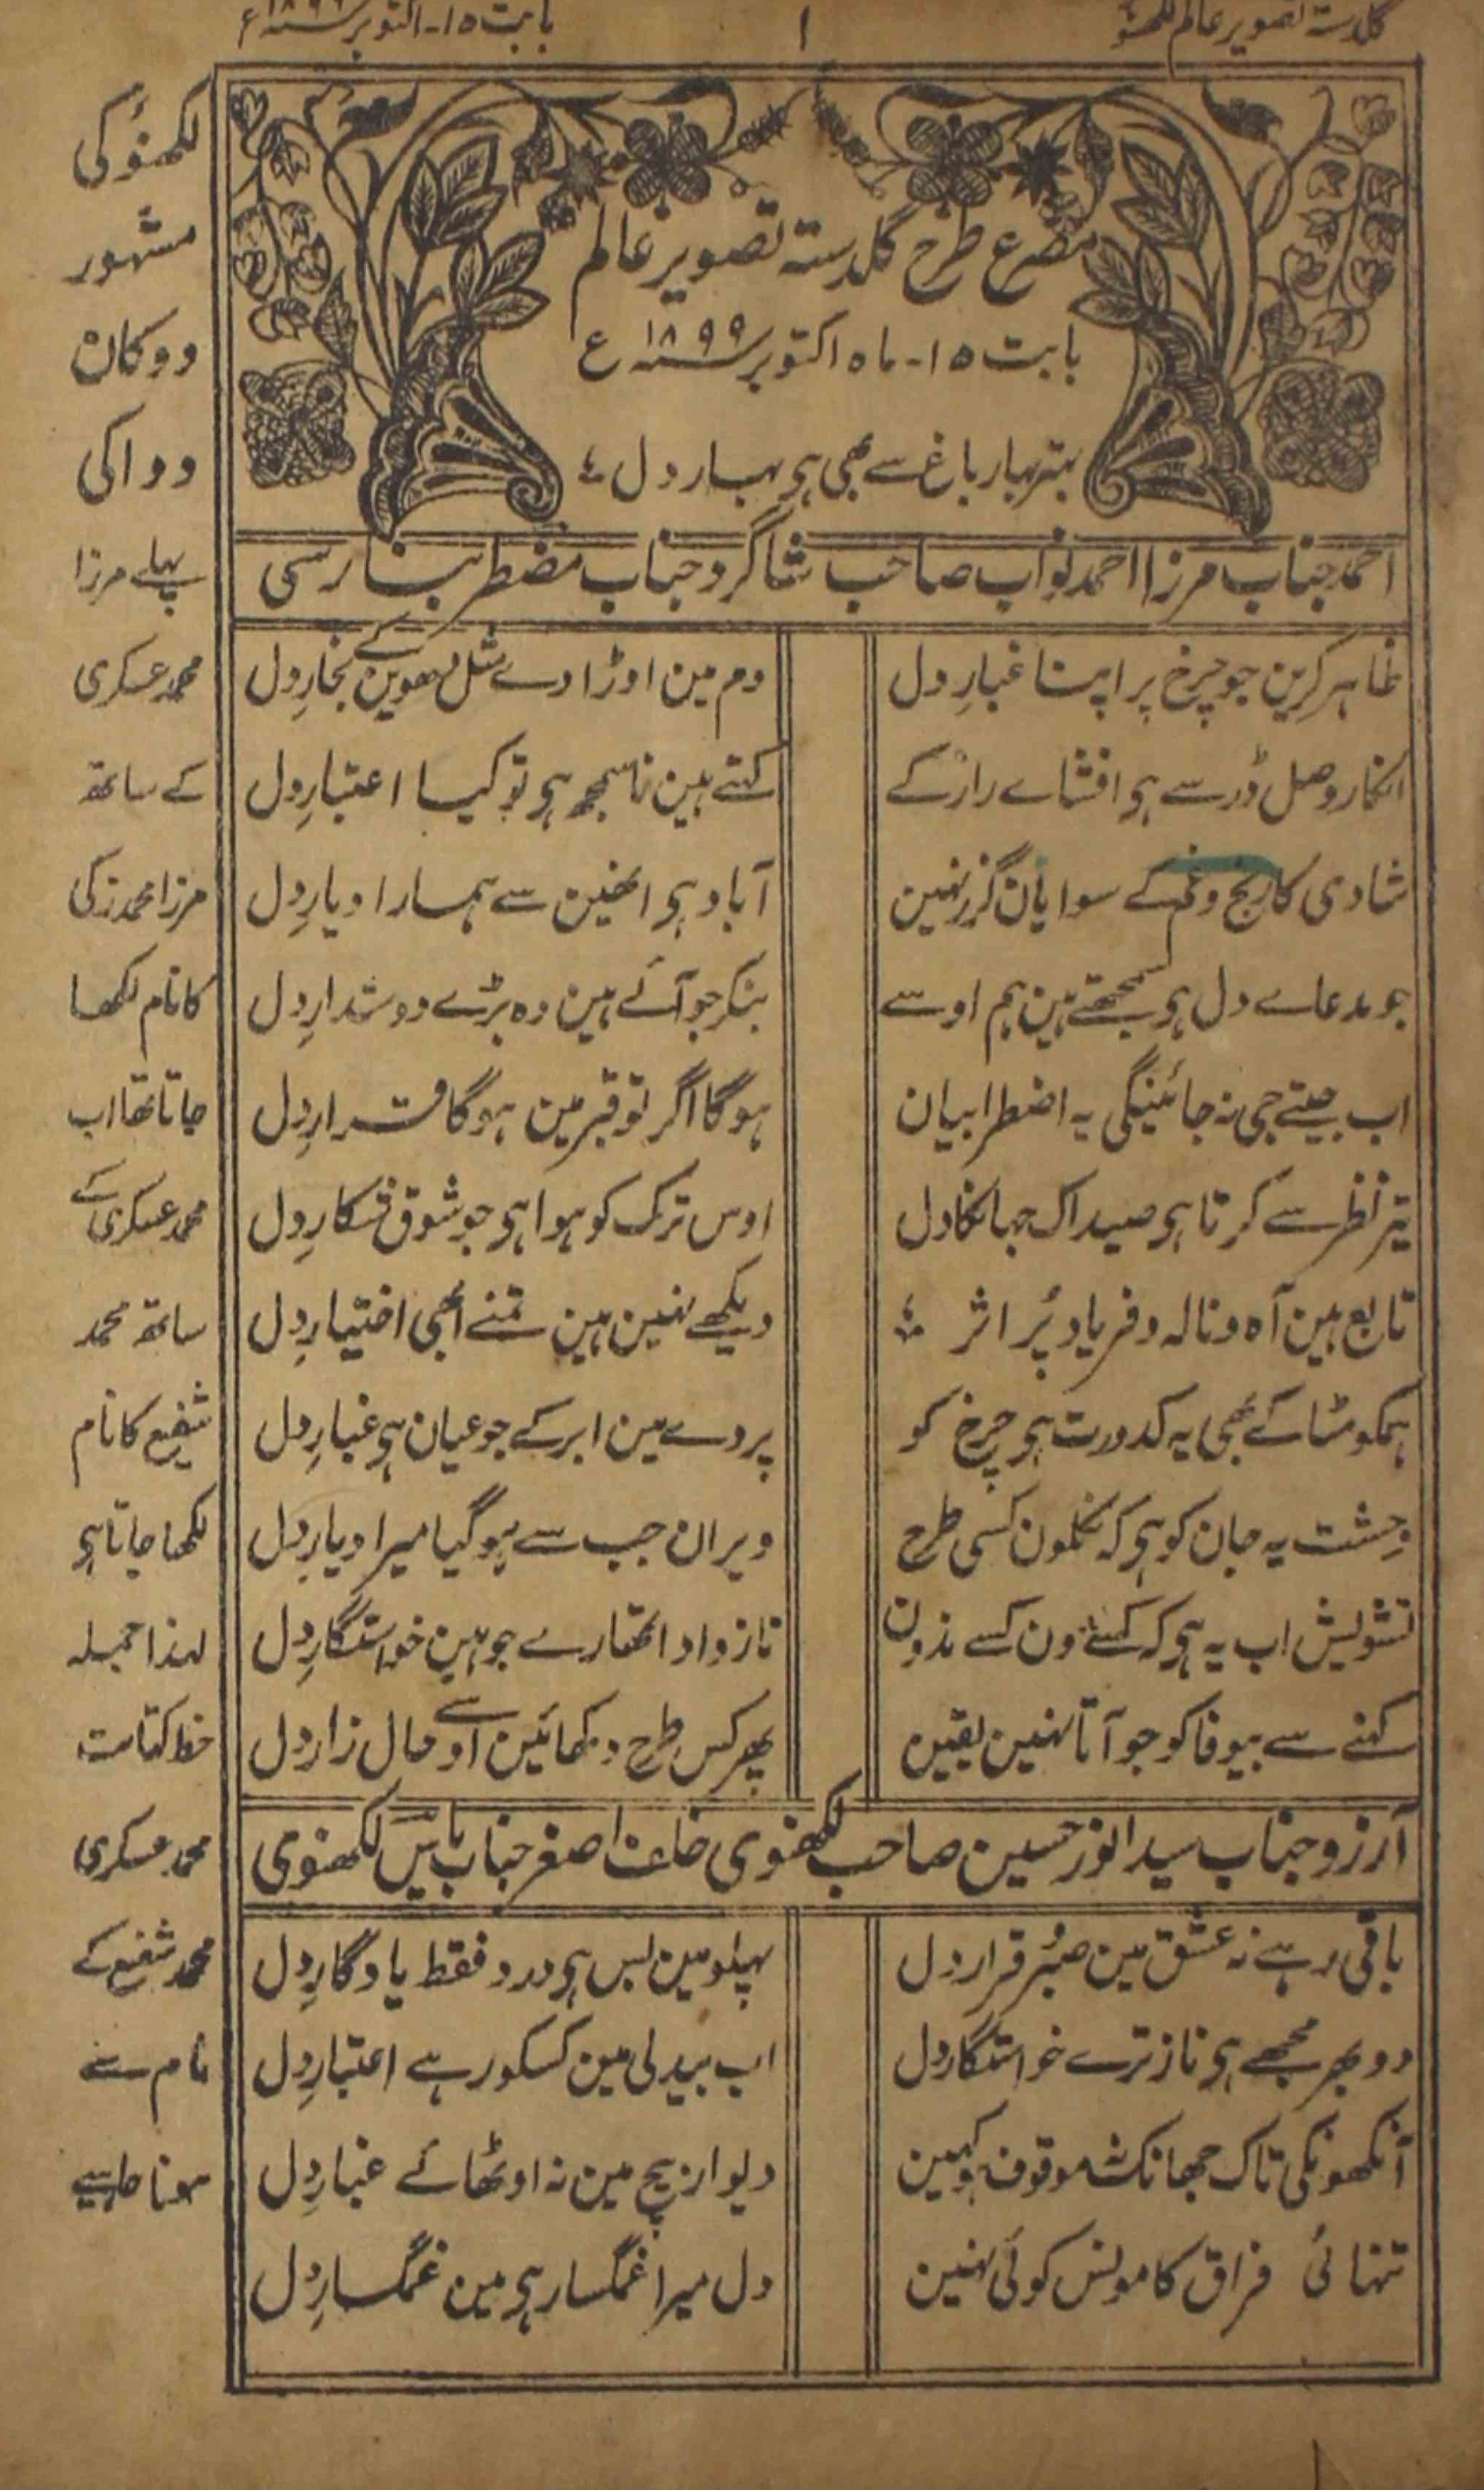 گلدستہ تصویر عالم لکھنؤ
۱
بابت ۱۵۔ اکتوبر ۱۸۹۹ء
مصرع طرح گلدستہ تصویر عالم
بابت ۱۵۔ ماہ اکتوبر ۱۸۹۹ء
بہتر بہار باغ سے بھی ہی بہار دل ؛
احمد جناب مرزا احمد نواب صاحب شاگرد جناب مضطر بنارسی
ظاہر کرین جو چرخ پر اپنا غبارِ دل
دم مین اوڑا دے مثل دھوین کے بخارِ دل
انکار وصل ڈر سے ہی افشاے راز کے
کہتے ہین ناسمجھ ہی تو کیسا اعتبارِ دل
شادی کا رنج و غم کے سوا یان گزر نہین
آباد ہی انھین سے ہمارا دیارِ دل
جو مدعاے دل ہی سمجھتے ہین ہم اوسے
بنکر جو آئے ہین وہ بڑے دوستدارِ دل
اب جیتے جی نہ جائینگی یہ اضطرابیان
ہوگا اگر تو قبر مین ہوگا قرارِ دل
تیر نظر سے کرتا ہی صید اک جہانکا دل
اوس ترک کو ہوا ہی جو شوق شکارِ دل
تابع ہین آہ و نالہ و فریاد پُر اثر ؛
دیکھے نہین ہین تمنے ابھی اختیارِ دل
ہمکو مٹا کے بھی یہ کدورت ہی چرخ کو
پردے مین ابر کے جو عیان ہی غبارِ دل
وحشت یہ جان کو ہی کہ نکلون کسی طرح
ویران جب سے ہوگیا میرا دیارِ دل
تشویش اب یہ ہی کہ کسے دون کسے ندون
ناز و ادا تھارے جو ہین خواستگارِ دل
کہنے سے بیوفا کو جو آتا نہین یقین
پھر کس طرح دکھائین اوسے حال زار دل
آرزو جناب سید انور حسین صاحب لکھنوی خلف اصغر جناب یاس لکھنوی
باقی رہے نہ عشق مین صبر قرار دل
پہلو مین بس ہی درد فقط یادگارِ دل
دوبھر مجھے ہی ناز ترے خواستگار دل
اب بیدلی مین کسکو رہے اعتبارِ دل
آنکھونکی تاک جھانک نہ موقوف ہو کہین
دیوار بیچ مین نہ اوٹھائے غبارِ دل
تنہائی فراق کا مونس کوئی نہین
دل میرا غمگسار ہی مین غمگسارِ دل
لکھنؤ کی
مشہور
دوکان
دوا کی
پہلے مرزا
محمد عسکری
کے ساتھ
مرزا محمد زکی
کا نام لکھا
جاتا تھا اب
محمد عسکری کے
ساتھ محمد
شفیع کا نام
لکھا جاتا ہی
لہذا جملہ
خط کتابت
محمد عسکری
محمد شفیع کے
نام سے
ہونا چاہیے